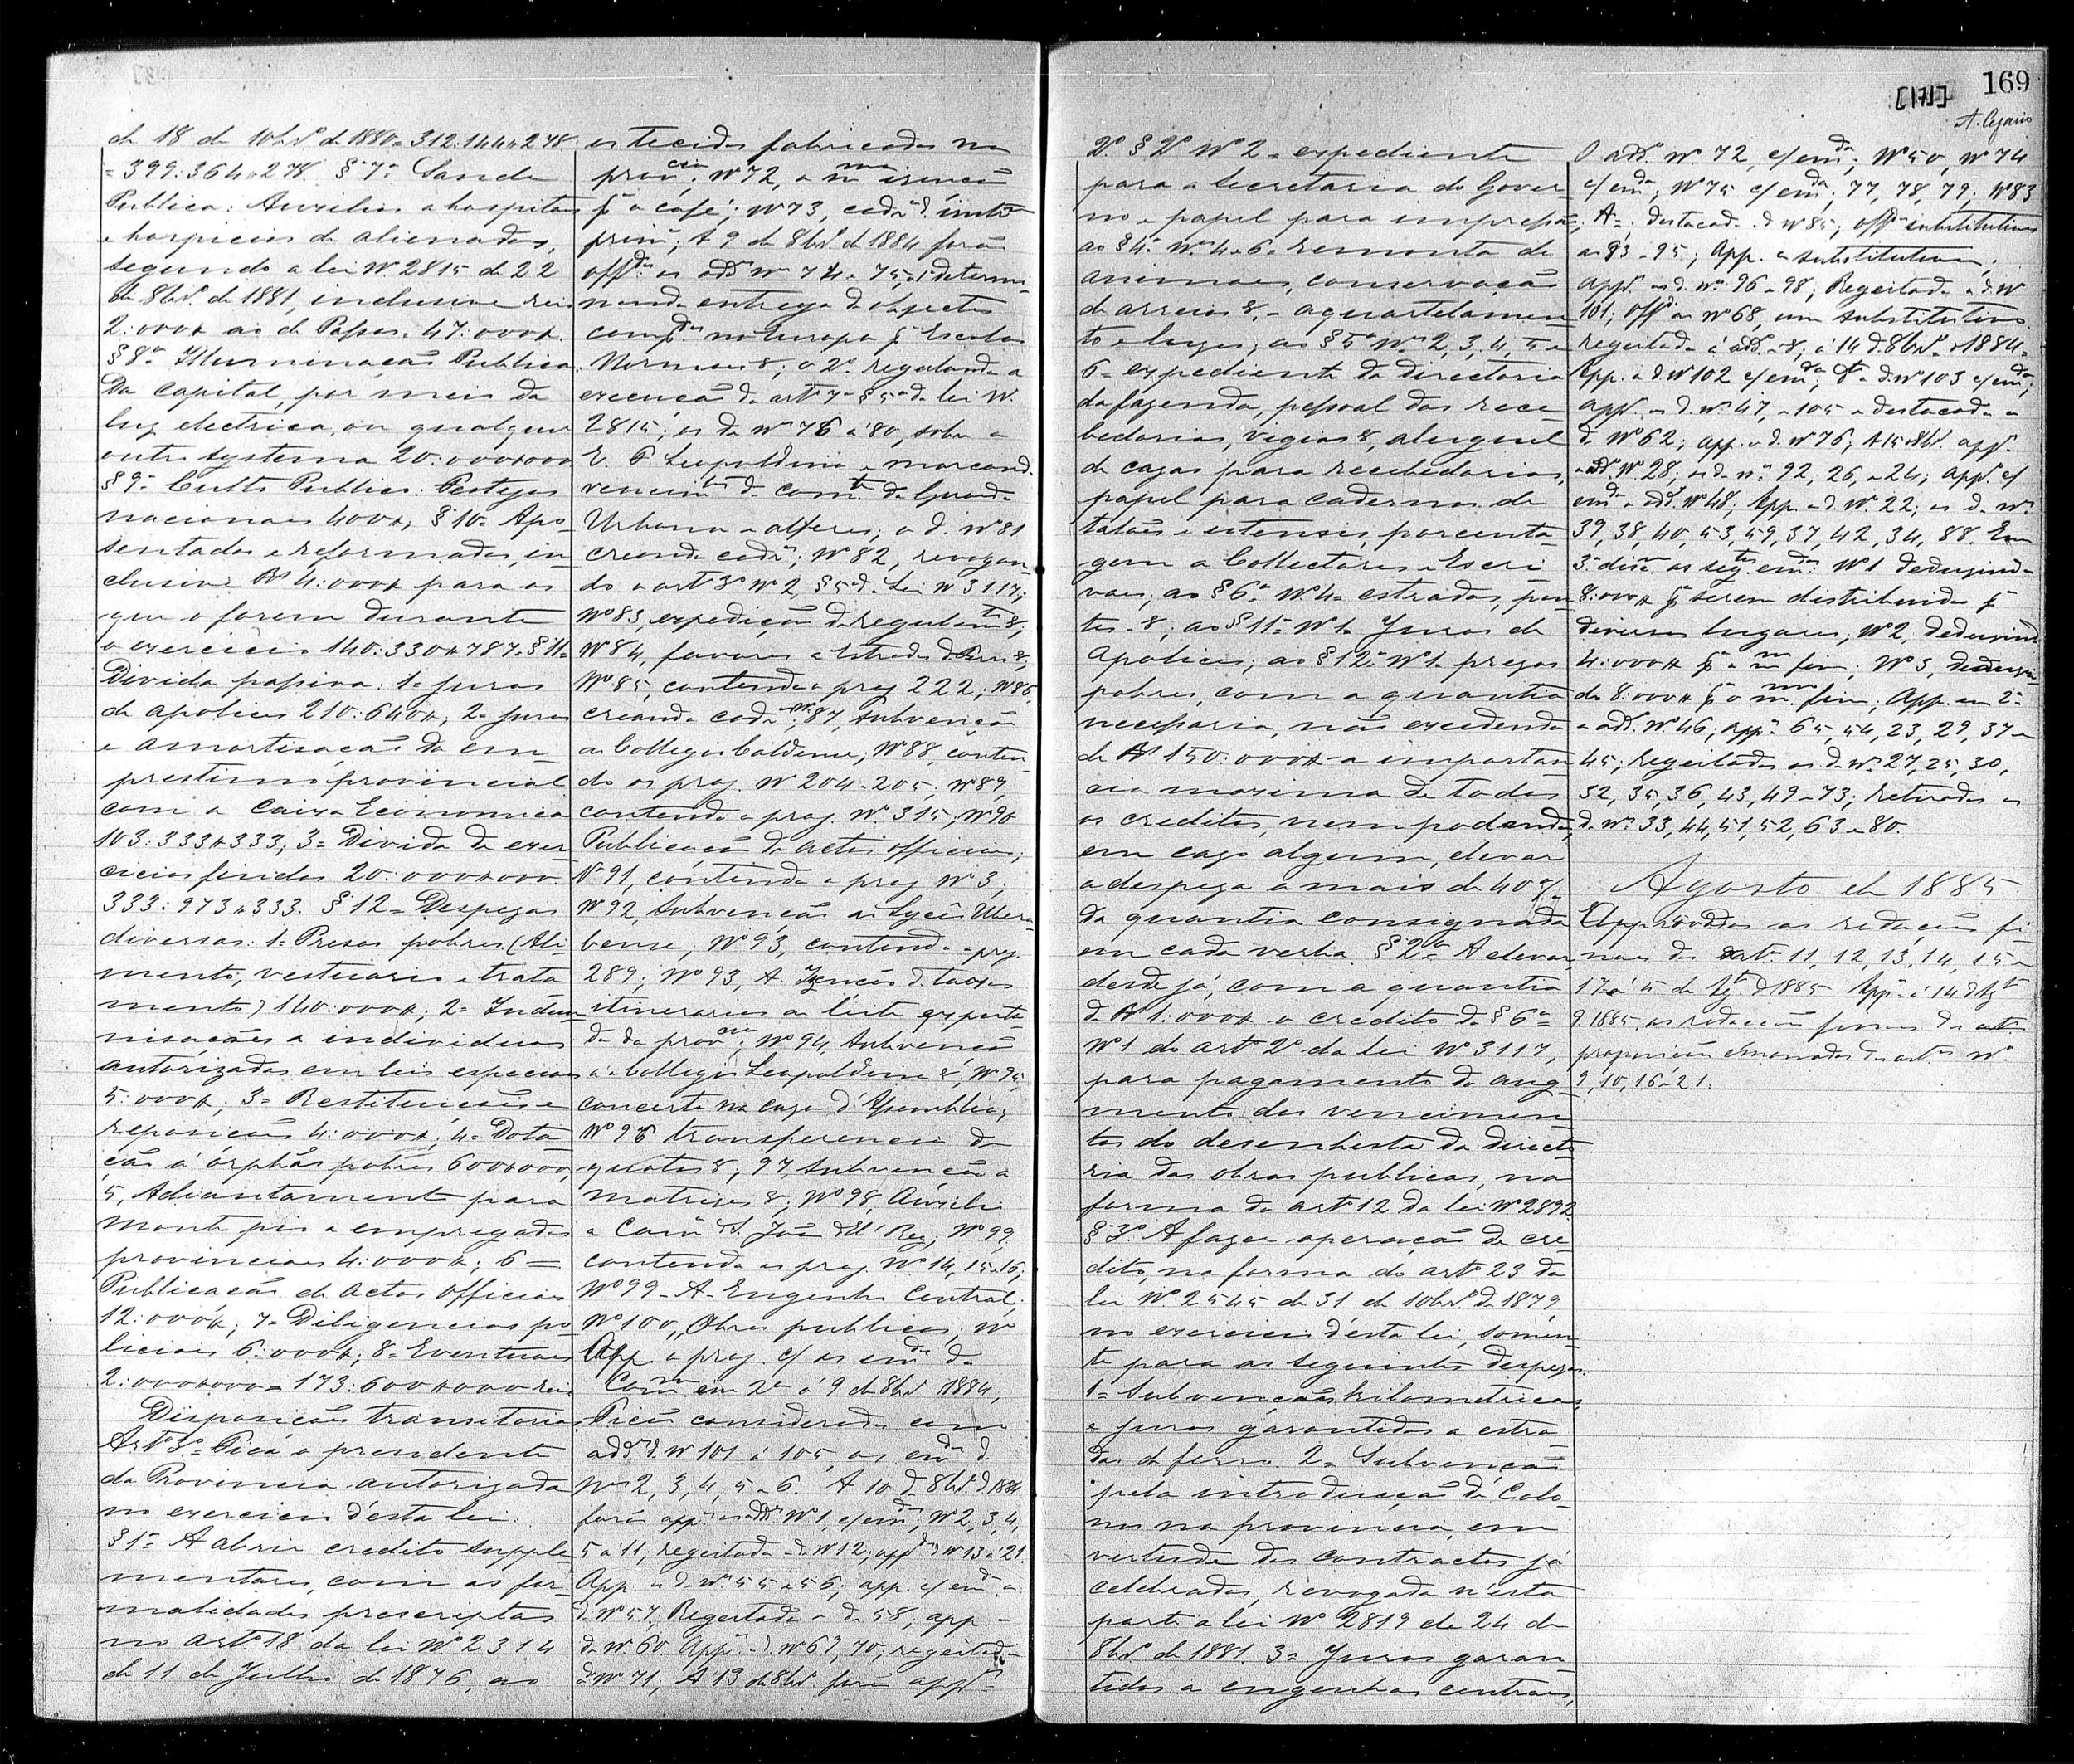 de 18 de 10brº de 1880 = 312:144$278.
= 399:364$278. § 7º Saude
Publica: Auxilios a hospitaes
e hospicios de alienados,
segundo a lei Nº 2815 de 22
de 8brº de 1881, inclusive reis
2:000$ ao de Passos. 47:000$.
§ 8º Illuminação Publica
Da capital, por meio da
luz electrica, ou qualquer
outro systema 20:000$000
§ 9º Culto Publico: Festejos
nacionaes 400$; § 10º Apo-
sentados e reformados, in-
clusive Rs 4:000$ para os
que o forem durante
o exercicio 140:330$787. § 11º
Divida passiva: 1º juros
de apolices 210:640$, 2º juros
e amortisação do em-
prestimo provincial
com a Caixa Economica
103:333$333; 3º Divida de exer-
cicios findos 20:000$000.
333:973$333. § 12º Despezas
diversas: 1º Presos pobres (Ali-
mento, vestuario e trata-
mento) 140:000$; 2º Indem-
nisações a individuos
autorizadas em leis especiaes
5:000$; 3º Restituições e
reposições 4:000$; 4º Dota-
ção á orphãs pobres 600$000;
5, Adiantamento para
Monte pio a empregados
provinciaes 4:000$; 6º
Publicação de actos officiaes
12:000$; 7º Diligencias po-
liciaes 6:000$; 8º Eventuaes
2:000$000 = 173:600$000 reis
Disposições transitorias
Artº 3º Fica o presidente
da Provincia autorizado
no exercicio d'esta lei.
§ 1º A abrir credito supple-
mentares, com as for-
malidades prescriptas
no artº 18 da lei Nº 2314
de 11 de Julho de 1876, ao
os tecidos fabricados na
provcia; Nº 72, a mma isenção
pª o café; Nº 73,
A 9 de 8brº de 1884 forão
offdos os addos nos 74 e 75, o 1º determi-
nando entrega d'objectos
compdos na Europa pª Escolas
Normaes &; o 2º regulando a
execução do artº 7º § 5º da lei Nº
2815; os de Nos 76 á 80, sobre a
E. F. Leopoldina e marcando
vencimtos do comte da Guarda
Urbana e alferes; o de Nº 81
creando cadra; Nº 82, revogan-
do o artº 3º Nº 2, § 5º d. Lei Nº 3117;
Nº 83, expedição de regulamto &;
Nº 84, favores a Estrada de Ferro &;
Nº 85, contendo o proj 222; Nº 86,
creando cadra; Nº 87, subvenção
ao Collegio Caldense; Nº 88, conten-
do os proj. Nº 204 e 205; Nº 89,
contendo o proj. Nº 315; Nº 90
Publicação de actos officiaes;
Nº 91, contendo o proj. Nº 3;
Nº 92, subvenção ao Lyceu Ubera-
bense; Nº 93, contendo o proj.
289; Nº 93, A. Izenção d. taxas
itinerarias ao leite exporta-
do da provcia; Nº 94, subvenção
a Collegio Leopoldina &; Nº 95,
concerto na caza d'Assemblea;
Nº 96 transferencia de
quotas &; 97, subvenção a
matrizes &; Nº 98, Auxilio
a Camª d S. João d'El Rey; Nº 99,
contendo os proj. Nº 14, 15 e 16;
Nº 99 - A - Engenho Central;
Nº 100, Obras publicas; Nº
App. o proj. c/ as emdas da
Commão em 2ª a 9 de 8brº 1884,
Ficou considerada como
addos d. Nº 101 á 105, as emdas d.
Nos 2, 3, 4, 5 e 6. A 10 de 8brº d 1884
forão appdos os addos Nº 1, c/ emda; Nº 2, 3, 4,
5 a 11; regeitado o de Nº 12; appdos d Nº 13 á 21.
App. os de Nos 55 e 56; app. c/ emda o
d. Nº 57. Regeitado o de 58; app. o
d. Nº 60. Appdos os d. Nº 69, 70; regeitado
o de Nº 71; A 13 de 8brº forão appdos
[171] 169
2º § 2º Nº 2 = expediente
para a Secretaria do Gover-
no e papel para impressão;
ao § 4º Nos 4 e 6 = remonta de
animaes, conservação
de arreios &, e aquartelamen-
to e luzes; ao § 5º Nos 2, 3, 4, 5 e
6 = expediente da directoria
da fazenda, pessoal das rece-
bedorias, vigias &, aluguel
de cazas para recebedorias,
papel para cadernos de
talões e extensis, porcenta-
gem a Collectores e Escri-
vaes; ao § 6º Nº 4 = estradas, pon-
tes &; ao § 11º Nº 1. Juros de
apolices; ao § 12º Nº 1. prezos
pobres, com a quantia
necessaria, não excedendo
de Rs 150:000$ a importan-
cia maxima de todos
os creditos, nem podendo,
em cazo algum, elevar
a despeza a mais de 40%
da quantia consignada
em cada verba. § 2º A elevar,
desde já, com a quantia
de Rs 1:000$ o credito do § 6º
Nº 1 do artº 2º da lei Nº 3117,
para pagamento do aug-
mento dos vencimen-
tos do desenhista da directo-
ria das obras publicas, na
forma do artº 12 da lei Nº 2892
§ 3º A fazer operação de cre-
dito, na forma do artº 23 da
lei Nº 2545 de 31 de 10brº de 1879,
no exercicio d'esta lei, somen-
te para as seguintes despezas.
1º Subvenções kilometricas,
e juros garantidos a estra-
das de ferro. 2º Subvenção
pela introducção de Colo-
nos na provincia, em
virtude dos contractos já
celebrados, revogada n'esta
parte a lei Nº 2819 de 24 de
8brº de 1881. 3º Juros garan-
tidos a engenhos centraes,
O addo nº 72, c/ emda; Nº 50, Nº 74
c/ emda; Nº 75 c/ emda; 77, 78, 79; Nº 83
A =; destacado o d Nº 85; offdo substitutivos
a 93 e 95; App. os substitutivos;
appdos os d. nos 96 e 98; Regeitado o d. Nº
101; offdo ao Nº 68, um substitutivo
regeitado á 14 d. 8brº d 1884.
App. o d. Nº 102 c/ emda; dto o d. Nº 103 c/ emda;
appdos os d. nos 47, e 105 e destacado o
de Nº 62; app. o d. Nº 76; A 15 8brº. appdos
o addo Nº 28; os d. nos 92, 26, e 24; appdo c/
emda o addo Nº 48; App. o d. Nº 22; os d. Nos
39, 38, 40, 53, 59, 37, 42, 34, 88. Em
3ª discão as segtes emdas: Nº 1 deduzindo
8:000$ pª serem distribuidos pª
diversos lugares; Nº 2, deduzindo
4:000$ pª o mmo fim; Nº 3, deduzin-
do 8:000$ pª o mmo fim; App. em 2ª
o addo Nº 46; appdos 65, 54, 23, 29, 37 e
45; Regeitados os d. Nos 27, 25, 30,
32, 35, 36, 43, 49 e 73; Retirados os
d. Nos 33, 44, 51, 52, 63 e 80.
Agosto de 1885.
Approvados as redações fi-
naes dos artos 11, 12, 13, 14, 15 e
17 á 5 de Agto d 1885 App. á 14 d Agto
d 1885, as redacções finaes de
proposições emanadas de artos Nos
9, 10, 16 e 21.